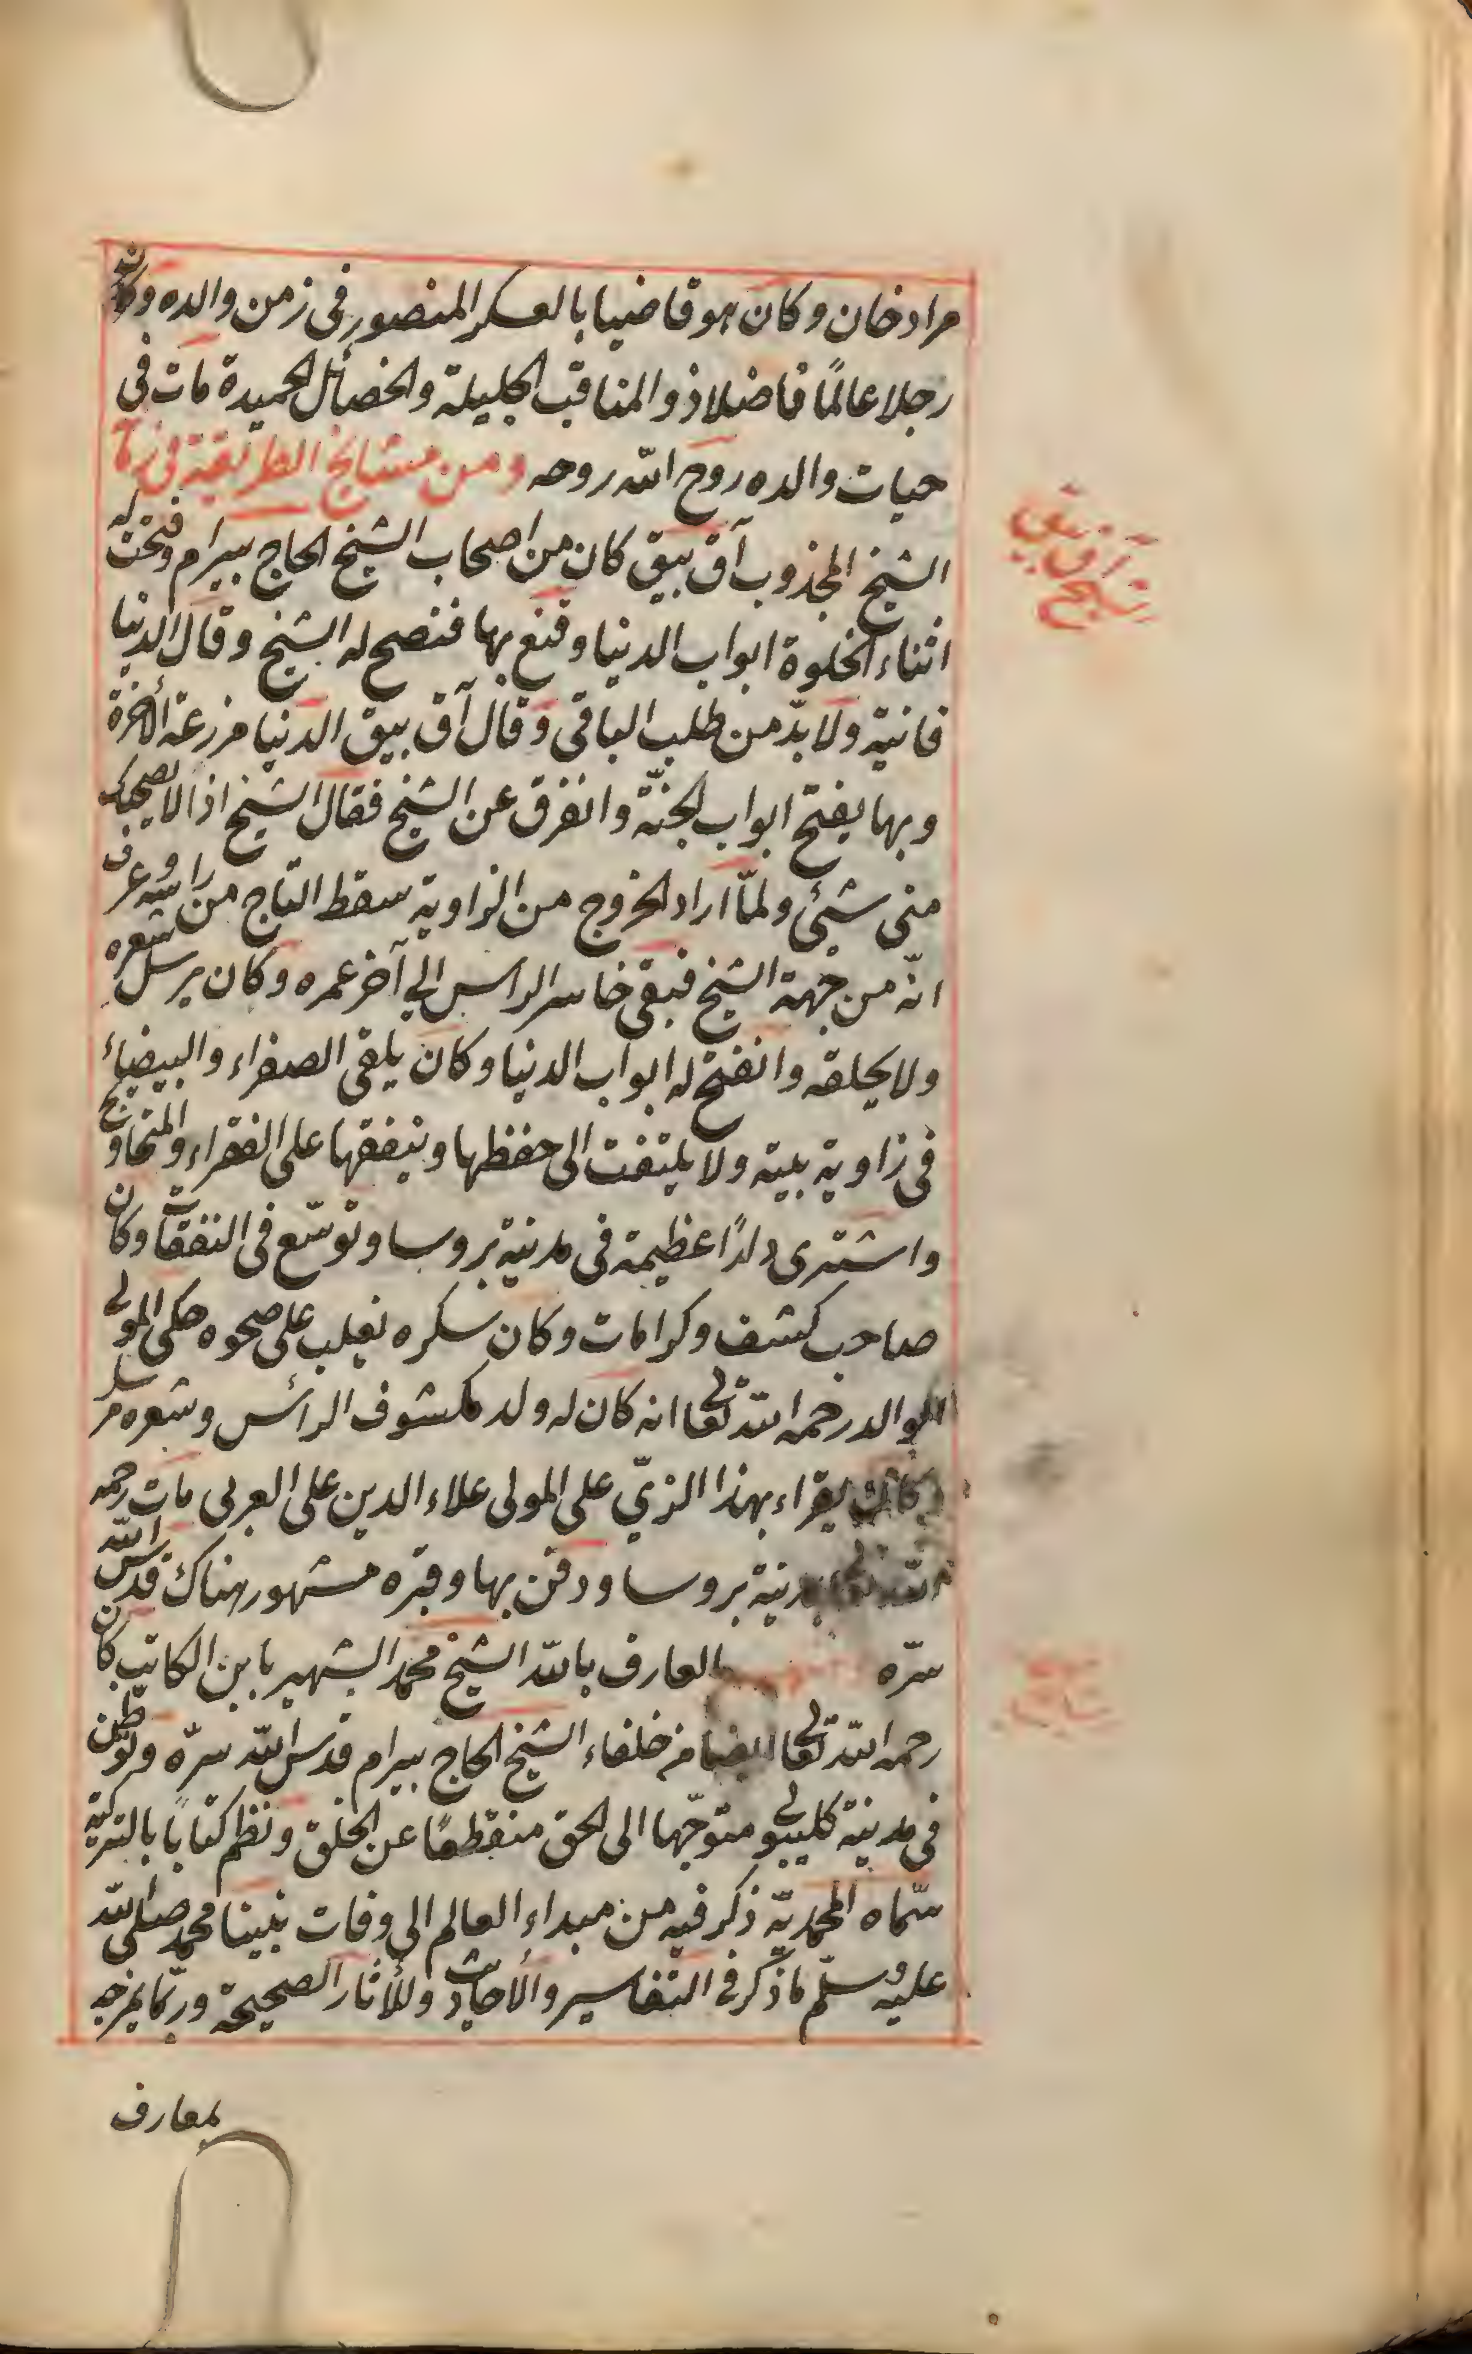 مراد خان وكان هو قاضيا بالعسكر المنصور فى زمن والده وكان
رجلا عالمًا فاضلا ذو المناقب الجليلة والخصائل الحميدة مات فى
حيات والده روح الله روحه ومن مشايخ الطريقة فى زمانه
الشيخ المجذوب آق بيق كان من اصحاب الشيخ الحاج بيرام وفتحت له
آق بيق
شيخ
اثناء الخلوة ابواب الدنيا وقنع بها فنصح له الشيخ وقال الدنيا
فانية ولا بدّ من طلب الباقى وقال آق بيق الدنيا مزرعة الآخرة
وبها يفتح ابواب الجنّة وانفرق عن الشيخ فقال الشيخ اذا لا يصحبك
منى شئ ولمّا اراد الخروج من الزاوية سقط التاج من راسه وعرف
انّه من جهة الشيخ فبقى خاسر الراس الى آخر عمره وكان يرسل شعره
ولا يحلقه وانفتح له ابواب الدنيا وكان يلقى الصفراء والبيضاء
فى زاوية بيته ولا يلتفت الى حفظها وينفقها على الفقراء والمحاويج
واشترى دارًا عظيمة فى مدينة بروسا وتوسّع فى النفقات وكان
صاحب كشف وكرامات وكان سكره يغلب على صحوه حكى المولى
الوالد رحمه الله تعالى انه كان له ولد مكشوف الرأس وشعره مرسل
وكان يقراء بهذا الزيّ على المولى علاء الدين على العربى مات رحمه
الله تعالى بمدينة بروسا ودفن بها وقبره مشهور هناك قدس الله
سرّه العارف بالله الشيخ محمد الشهير بابن الكاتب كان
رحمه الله تعالى ايضا من خلفاء الشيخ الحاج بيرام قدس الله سرّه وتوطن
فى مدينة كليبولى متوجّها الى الحق منقطعًا عن الخلق ونظم كتابًا بالتركية
سمّاه المحمديّة ذكر فيه من مبداء العالم الى وفات نبينا محمد صلى الله
عليه وسلّم ما ذكر فى التفاسير والاحاديث وللأثار الصحيحة وربّما يمزجه
بمعارف